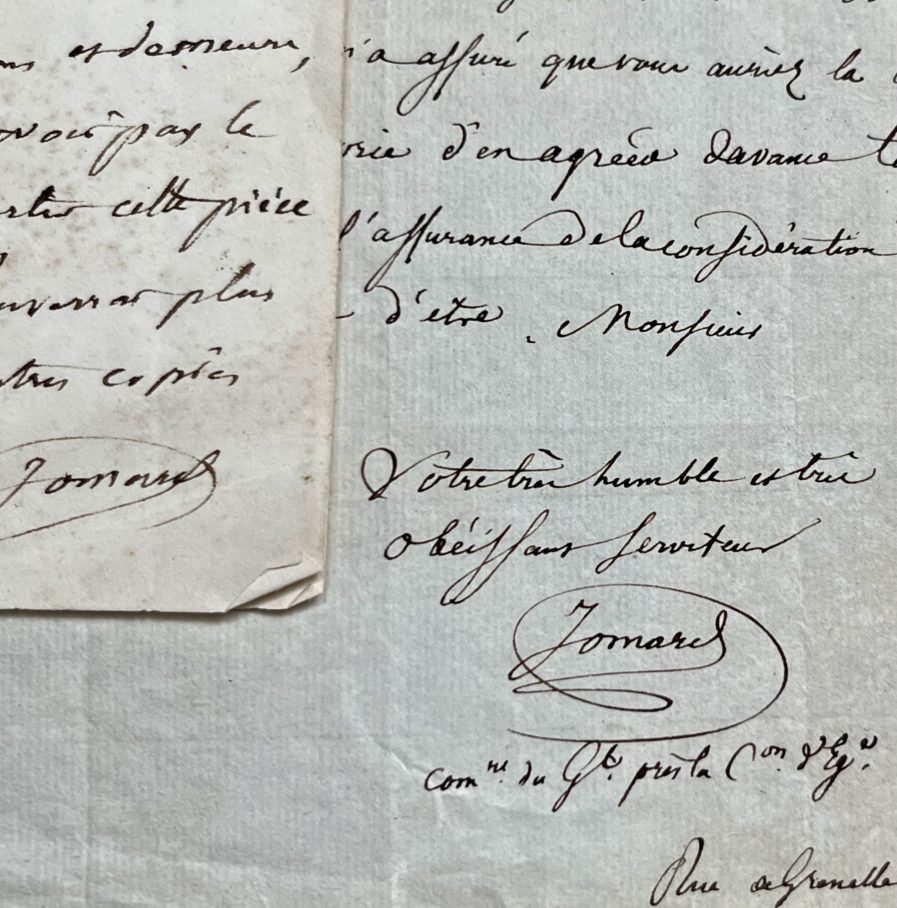 et demeure,
par le
cette pièce
plus
copies
Jomard
a assuré que vous auriez la
d'en agréer d'avance
l'assurance de la considération
d'être, Monsieur
Votre très humble et très
obéissant serviteur
Jomard
Com.re du G.t près la C.on d'Eg.e
Rue de Grenelle